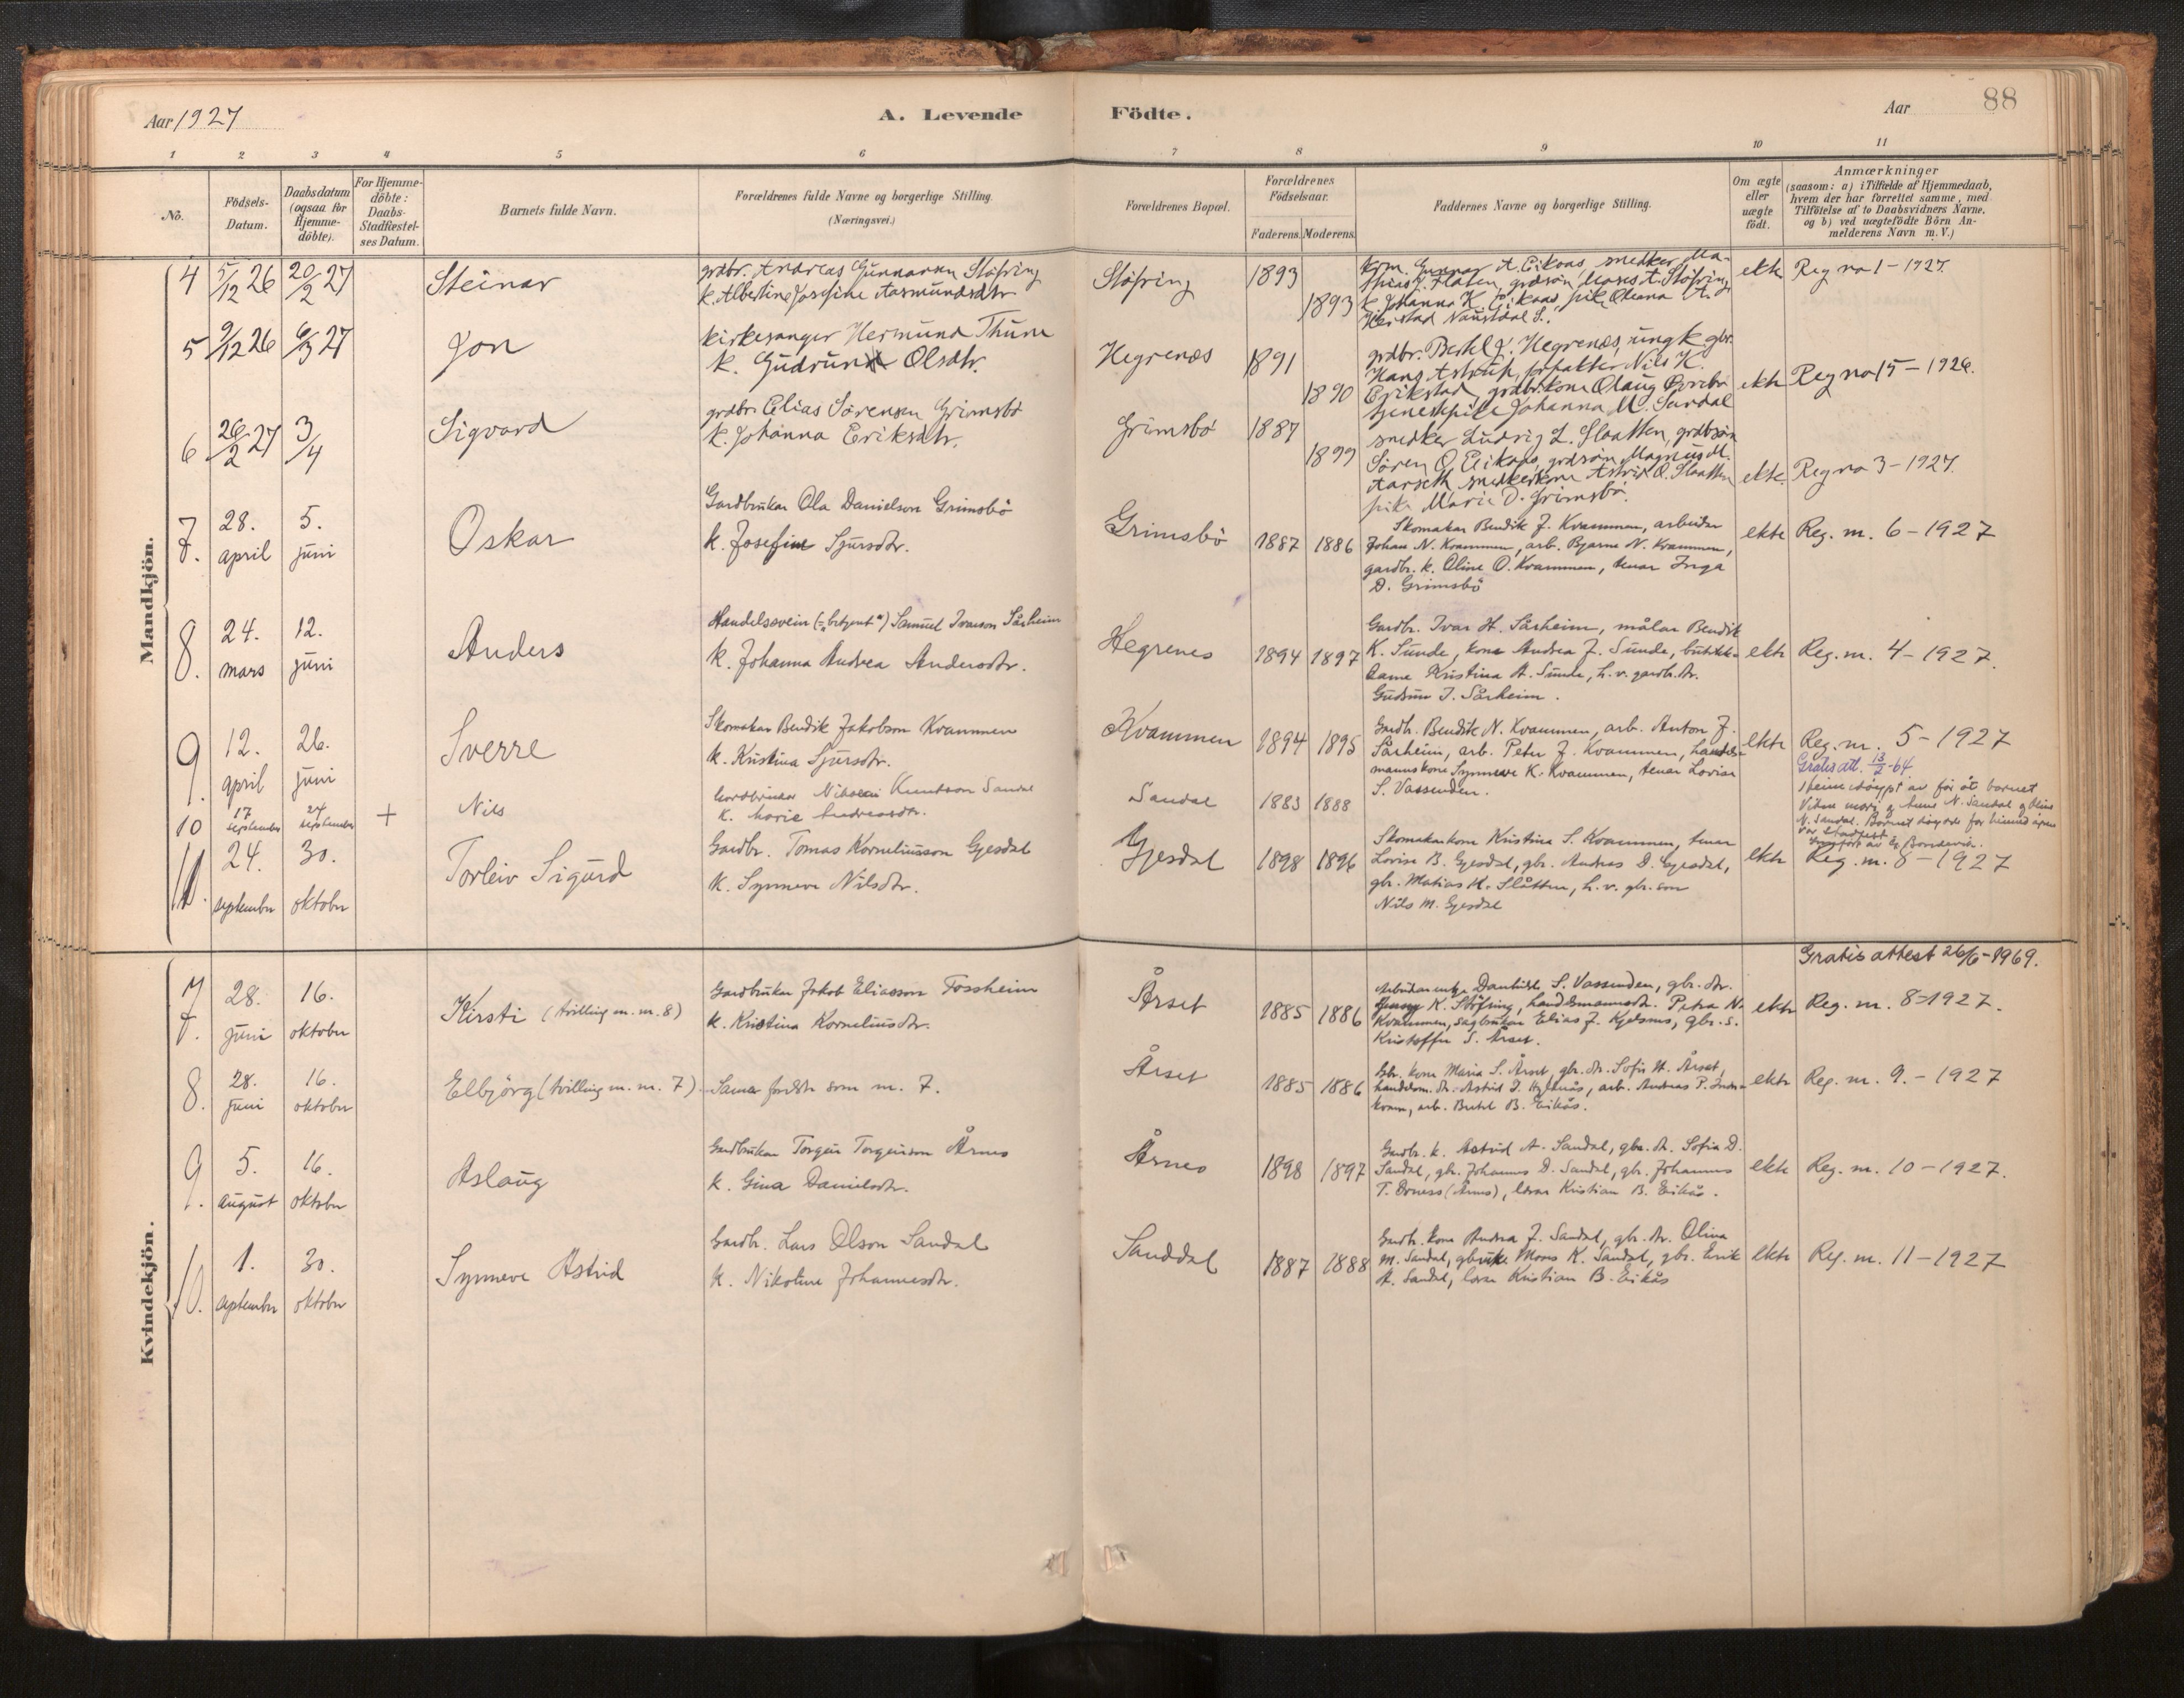 Aar 1927
A. Levende
Födte.
Aar
88
1 2 3 4 5 6 7 8 9 10 11
Nô.
Födsels-
Datum.
Daabsdatum
(ogsaa for
Hjemme-
döbte).
For Hjemme-
döbte:
Daabs-
Stadfæstel-
ses Datum.
Barnets fulde Navn.
Forældrenes fulde Navne og borgerlige Stilling.
(Næringsvei.)
Forældrenes Bopæl.
Forældrenes
Födselsaar.
Faderens. Moderens.
Faddernes Navne og borgerlige Stilling.
Om ægte
eller
uægte
födt.
Anmærkninger
(saasom: a) i Tilfælde af Hjemmedaab,
hvem der har forrettet samme, med
Tilföielse af to Daabsvidners Navne,
og b) ved uægtefödte Börn An-
melderens Navn m. V.)
Mandkjön.
4 5/12 26 20/2 27 Steinar
grdbr. Andreas Gunnarsen Stöfring
k. Albertine Josefine Aasmundsdtr
Stöfring 1893 1893
krm. Gunnar A. Eikaas, snedker Ma-
thias J. Flaten, grdsön Mons A. Stöfring
k Johanna K. Eikaas, pike Oleana A.
Heistad Naustdal S.
ekte Reg no 1 - 1927.
5 9/12 26 6/3 27 Jon
kirkesanger Hermund Thune
k. Gudrun Olsdtr.
Hegrenæs 1891 1890
grdbr. Bertel J. Hegrenæs, ungk. gbr.
Hans Astrup, forpakter Nils K.
Erikstad, grdbr.kone Olaug Övrebö
tjenestpike Johanna M. Sandal
ekte Reg no 15 - 1926.
6 26/2 27 3/4 Sigvard
grdbr. Elias Sörensen Grimsbö
k. Johanna Eriksdtr.
Grimsbö 1887 1899
snedker Ludvig L. Slaatten, grdbsön
Sören O. Eikaas, grdsön Magnus M.
Aarseth, snedkerkone Astrid O. Slaatten
pike Marie D. Grimsbö.
ekte. Reg no 3 - 1927.
7. 28. april 5. juni Oskar
Gardbrukar Ola Danielson Grimsbö
k. Josefine Sjursdtr.
Grimsbö 1887 1886
Skomakar Bendik J. Kvammen, arbeidar
Johan N. Kvammen, arb. Bjarne N. Kvammen,
gardbr. k. Oline O. Kvammen, tenar Inga
D. Grimsbö
ekte Reg. nr. 6 - 1927
8. 24. mars 12. juni Anders
Handelssvein (="betjent") Samuel Ivarson Sårheim
k. Johanna Andrea Andersdtr.
Hegrenes 1894 1897
Gardbr. Ivar H. Sårheim, målar Bendik
K. Sunde, kone Andrea J. Sunde, butikk-
dame Kristina A. Sunde, h. v. gardb.dtr.
Gudrun I. Sårheim.
ekte Reg. nr. 4 - 1927.
9. 12. april 26. juni Sverre
Skomakar Bendik Jakobson Kvammen
k. Kristina Sjursdtr.
Kvammen 1894 1895
Gardbr. Bendik N. Kvammen, arb. Anton J.
Sårheim, arb. Peter J. Kvammen, handels-
mannskone Synneve K. Kvammen, tenar Lovise
S. Vassenden.
ekte Reg. nr. 5 - 1927
Gratis att. 13/2-64
10 17 september 24 september + Nils
Gardbrukar Nikolai Knutson Sandal
k. Marie Andreasdtr.
Sandal 1883 1888
Heime döypt av far åt barnet
N. Sandal. Barnet döyde för
11. 24. september 30. oktober Torleiv Sigurd
Gardbr. Tomas Korneliusson Gjesdal
k. Synneve Nilsdtr.
Gjesdal 1898 1896
Skomakarkone Kristina S. Kvammen, tenar
Lovise B. Gjesdal, gbr. Andreas D. Gjesdal,
gbr. Matias K. Slåtten, h. v. gbr. son
Nils M. Gjesdal
ekte Reg. nr. 8 - 1927
Kvindekjön.
Gratis attest 26/6 - 1969.
7. 28. juni 16. oktober Kirsti (tvilling m. nr. 8)
Gardbrukar Jakob Eliasson Fossheim
k. Kristina Korneliusdtr.
Årset 1885 1886
S. Vassenden, gbr. dtr.
Jenny K. Stöfring, handelsmannsdtr. Petra N.
Kvammen, sagbrukar Elias J. Kjelsnes, gbr. s.
Kristoffer S. Årset.
ekte Reg. nr. 8 - 1927.
8. 28. juni 16. oktober Elbjörg (tvilling m. nr. 7)
Same foreldr som nr. 7.
Årset 1885 1886
Gbr. kone Maria S. Årset, gbr. dtr. Sofie H. Årset,
handelsm. dtr. Astrid J. arb. Andreas P. Indre-
kvam, arb. Bertel B. Eikås.
ekte Reg. nr. 9. - 1927
9. 5. august 16. oktober Aslaug
Gardbrukar Torgeir Torgeirson Årnes
k. Gina Danielsdtr.
Årnes 1898 1897
Gardbr. k. Astrid A. Sandal, gbr. dtr. Sofia D.
Sandal, gbr. Johannes D. Sandal, gbr. Johannes
T. Orness (Årnes), lærar Kristian B. Eikås.
ekte Reg. nr. 10 - 1927.
10. 1. september 30. oktober Synneve Astrid
Gardbr. Lars Olson Sandal
k. Nikoline Johannesdtr.
Sanddal 1887 1888
Gardbr. kone Andrea J. Sandal, gbr. dtr. Olina
M. Sandal, Mons K. Sandal, gbr. Erik
A. Sandal, lærar Kristian B. Eikås
ekte Reg. nr. 11 - 1927